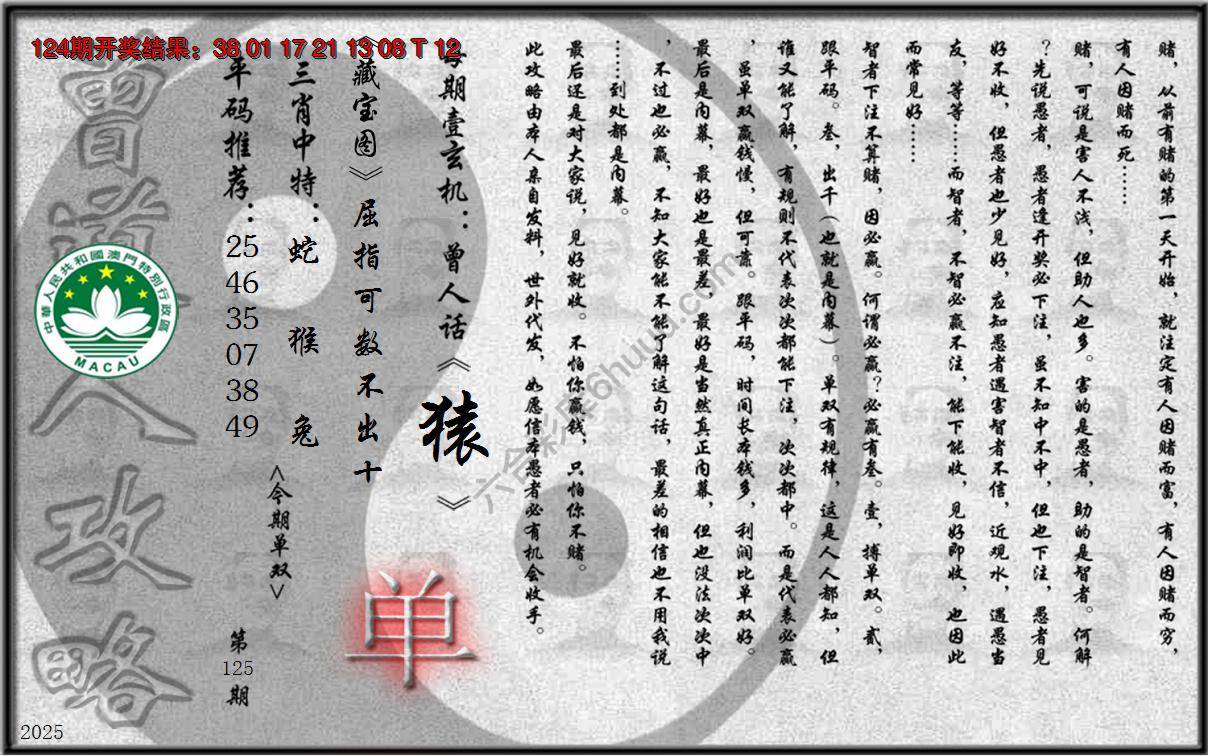 124期开奖结果：38 01 17 21 13 08 T 12
赌，从前有赌的第一天开始，就注定有人因赌而富，有人因赌而穷，
有人因赌而死……
赌，可说是害人不浅，但助人也多。害的是愚者，助的是智者。何解
？先说愚者，愚者逢开奖必下注，虽不知中不中，但也下注，愚者见
好不收，但愚者也少见好，应知愚者遇害智者不信，近观水，遇愚当
友，等等……而智者，不智必赢不注，能下能收，见好即收，也因此
而常见好……
智者下注不算赌，因必赢。何谓必赢？必赢有叁。壹，搏单双。贰，
跟平码。叁，出千（也就是内幕）。单双有规律，这是人人都知，但
谁又能了解，有规则不代表次次都能下注，次次都中。而是代表必赢
，虽单双赢钱慢，但可靠。跟平码，时间长本钱多，利润比单双好。
最后是内幕，最好也是最差，最好是当然真正内幕，但也没法次次中
，不过也必赢，不知大家能不能了解这句话，最差的相信也不用我说
……到处都是内幕。
最后还是对大家说，见好就收。不怕你赢钱，只怕你不赌。
此攻略由本人亲自发料，世外代发，如愿信本愚者必有机会收手。
每期壹玄机：曾人话《猿》
《藏宝图》屈指可数不出十
三肖中特：蛇 猴 兔
<今期单双>
单
平码推荐：25 46 35 07 38 49
第125期
曾道人攻略
中華人民共和國澳門特別行政區
MACAU
六合彩库6huuu.com
2025